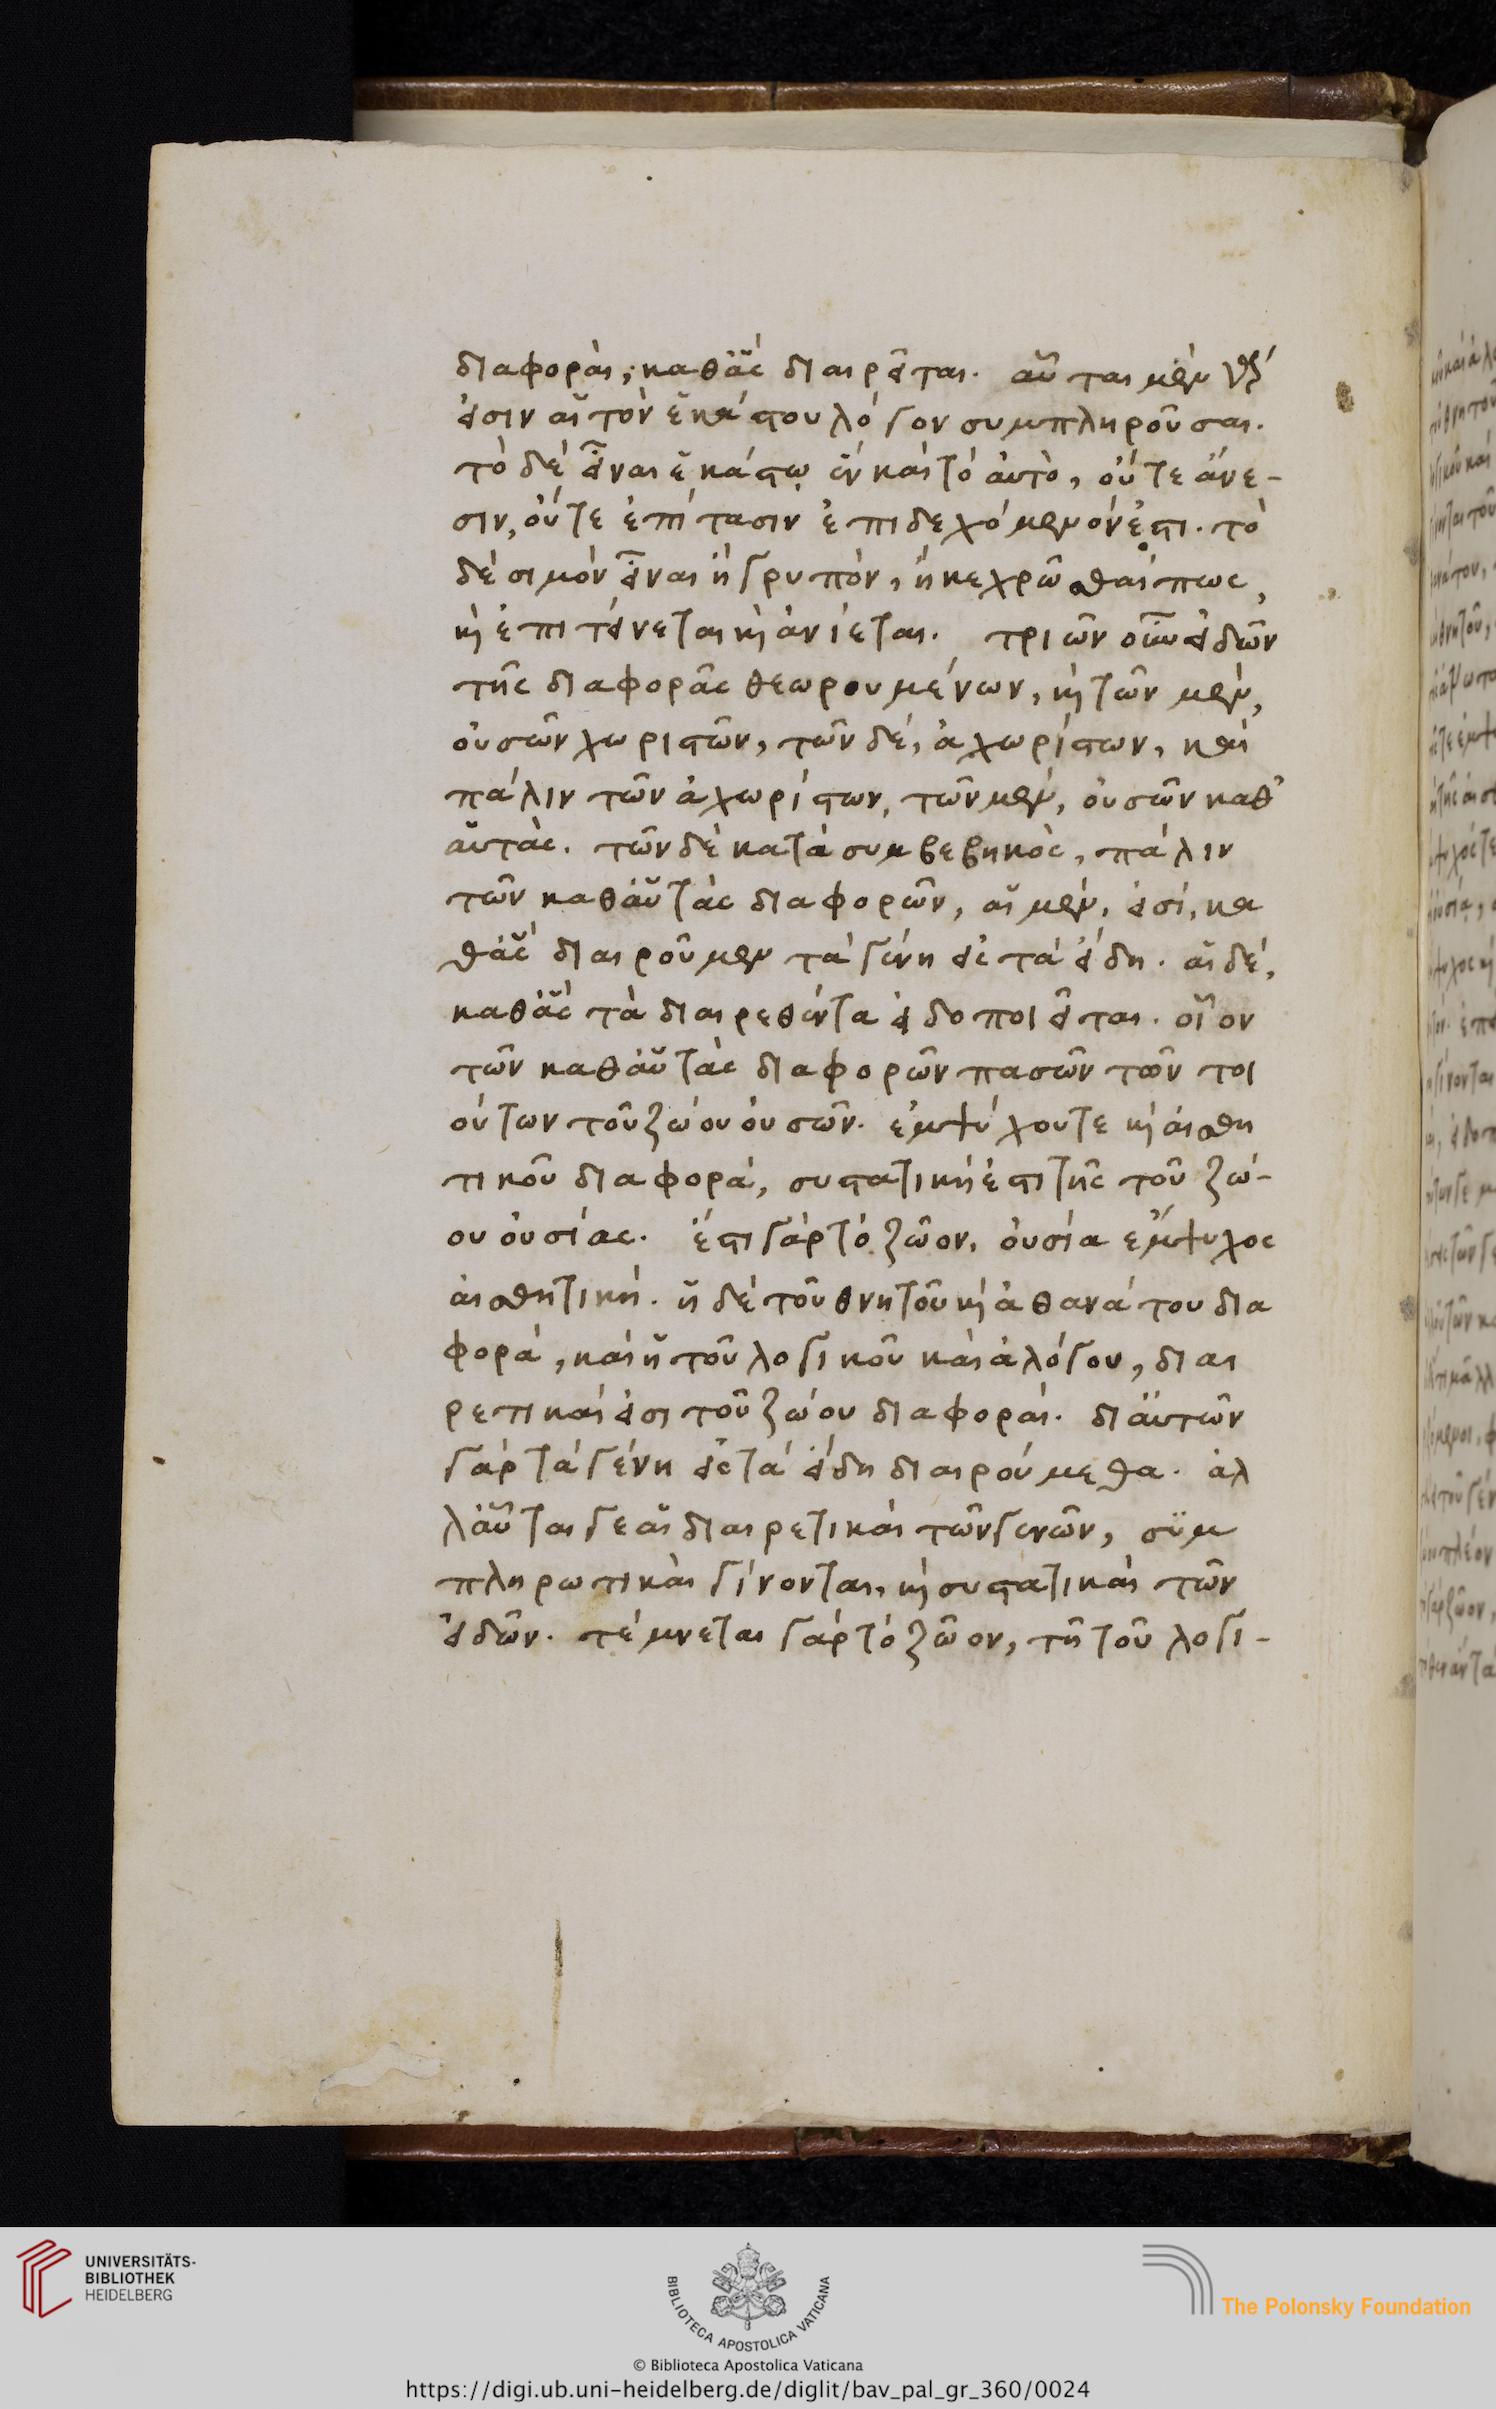 διαφοραὶ, καθἃς διαιρεῖται. αὗται μὲν γάρ
εἰσιν αἱ τὸν ἑκάστου λόγον συμπληροῦσαι.
τὸ δὲ εἶναι ἑκάστῳ ἓν καὶ τὸ αὐτὸ, οὔτε ἄνε-
σιν, οὔτε ἐπίτασιν ἐπιδεχόμενόν ἐστι. τὸ
δὲ σιμὸν εἶναι ἢ γρυπὸν, ἢ κεχρῶσθαί πως,
καὶ ἐπιτείνεται καὶ ἀνίεται. τριῶν οὖν εἰδῶν
τῆς διαφορᾶς θεωρουμένων, καὶ τῶν μὲν,
οὐσῶν χωριστῶν, τῶν δὲ, ἀχωρίστων, καὶ
πάλιν τῶν ἀχωρίστων, τῶν μὲν, οὐσῶν καθ'
αὑτὰς. τῶν δὲ κατὰ συμβεβηκὸς, πάλιν
τῶν καθ' αὑτὰς διαφορῶν, αἱ μὲν, εἰσὶ, κα
θ' ἃς διαιροῦμεν τὰ γένη εἰς τὰ εἴδη. αἱ δὲ,
καθ' ἃς τὰ διαιρεθέντα εἰδοποιεῖται. οἷον
τῶν καθ' αὑτὰς διαφορῶν πασῶν τῶν τοι
ούτων τοῦ ζώου οὐσῶν. ἐμψύχου τε καὶ αἰσθη
τικοῦ διαφορά, συστατική ἐστι τῆς τοῦ ζώ-
ου οὐσίας. ἔστι γὰρ τὸ ζῶον, οὐσία ἔμψυχος
αἰσθητική. ἡ δὲ τοῦ θνητοῦ καὶ ἀθανάτου δια
φορά, καὶ ἡ τοῦ λογικοῦ καὶ ἀλόγου, διαι
ρετικαί εἰσι τοῦ ζώου διαφοραί. δι' αὐτῶν
γὰρ τὰ γένη εἰς τὰ εἴδη διαιρούμεθα. ἀλ
λ' αὗται γε αἱ διαιρετικαὶ τῶν γενῶν, συμ
πληρωτικαὶ γίνονται, καὶ συστατικαὶ τῶν
εἰδῶν. τέμνεται γὰρ τὸ ζῶον, τῇ τοῦ λογι-
UNIVERSITÄTS-
BIBLIOTHEK
HEIDELBERG
BIBLIOTECA APOSTOLICA VATICANA
The Polonsky Foundation
© Biblioteca Apostolica Vaticana
https://digi.ub.uni-heidelberg.de/diglit/bav_pal_gr_360/0024